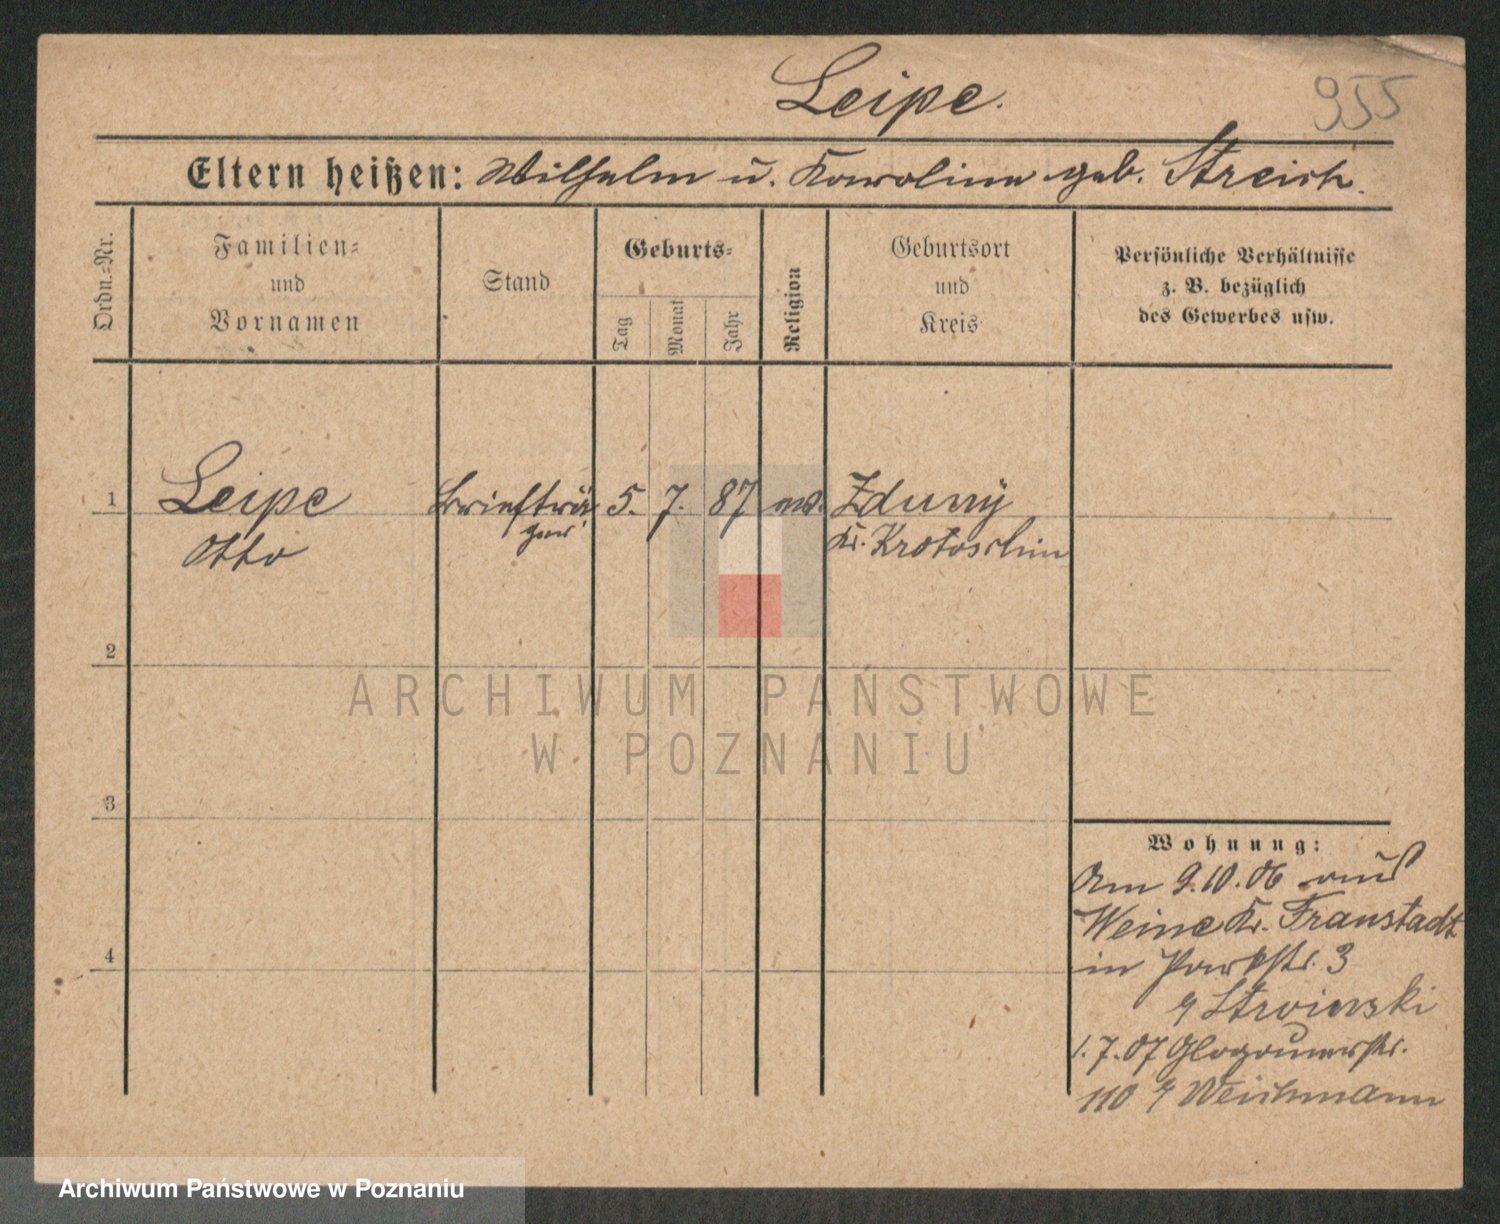 Leipe.
955
Eltern heißen: Wilhelm u. Karoline geb. Streich.
Ordn.=Nr.
Familien=
und
Vornamen
Stand
Geburts=
Tag
Monat
Jahr
Religion
Geburtsort
und
Kreis
Persönliche Verhältnisse
z. B. bezüglich
des Gewerbes usw.
1 Leipe Briefträ 5. 7. 87 ev. Zduny
Otto ger Kr. Krotoschin
2
3
4
Wohnung:
Am 9.10.06 aus
Weine Kr. Fraustadt
in Parkstr. 3
Stroinski
1.7.07 Glogauerstr.
110 Weichmann
ARCHIWUM PAŃSTWOWE
W POZNANIU
Archiwum Państwowe w Poznaniu